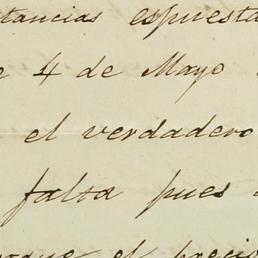 tancias espuesta
e 4 de Mayo
el verdadero
falta pues
rque el precis